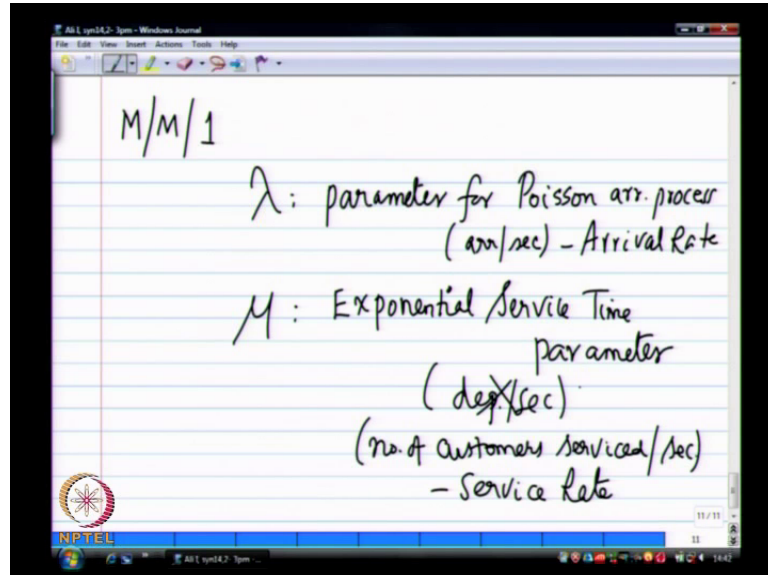 Ali I, syn14,2- 3pm - Windows Journal
File Edit View Insert Actions Tools Help
M/M/1
λ: parameter for Poisson arr. process
(arr/sec) - Arrival Rate
μ: Exponential Service Time
parameter
(dep./sec)
(no. of customers serviced/sec)
- Service Rate
11 / 11
11
NPTEL
Ali I, syn14,2- 3pm -...
14:42